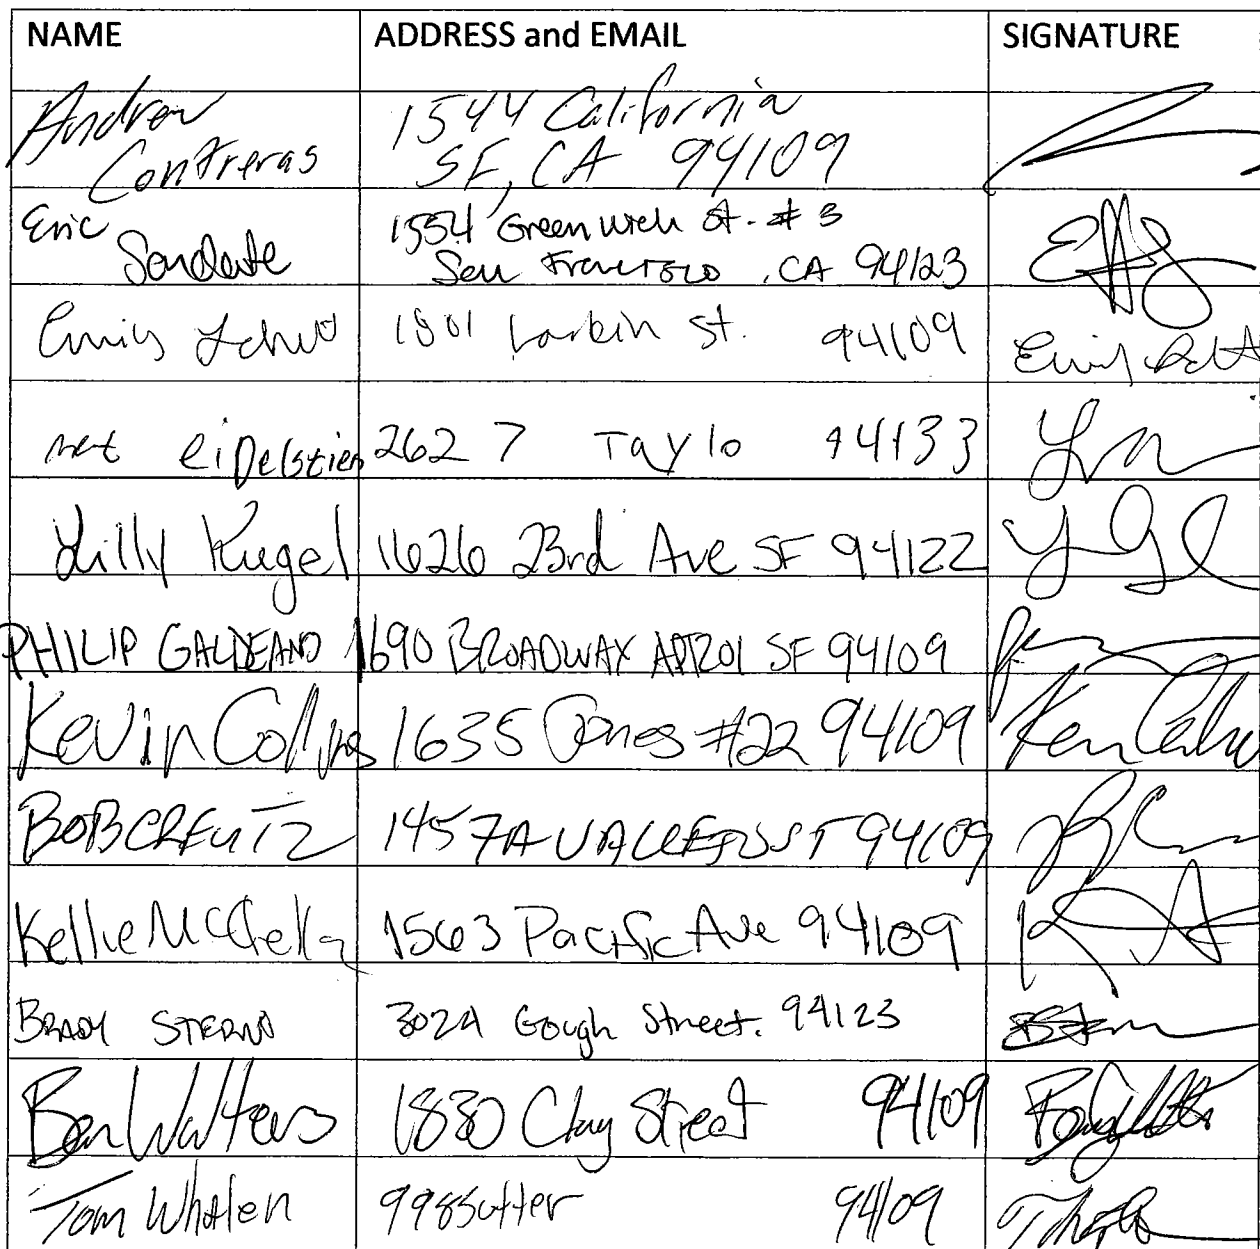 NAME ADDRESS and EMAIL SIGNATURE
Andrew 1544 California
Contreras SF, CA 94109
Eric 1554 Greenwich St. # 3
San Francisco, CA 94123
Emily 1801 Larkin St. 94109
2627 Taylo 94133
Lilly Kugel 1626 23rd Ave SF 94122
PHILIP GALDEANO 1690 BROADWAY APT201 SF 94109
Kevin Collins 1635 Jones #22 94109
BOB CREUTZ 1457A VALLEJO ST 94109
Kellie 1563 Pacific Ave 94109
BRADY 3024 Gough Street. 94123
Ben Walters 1830 Clay Street 94109
Tom Whalen 998 Sutter 94109